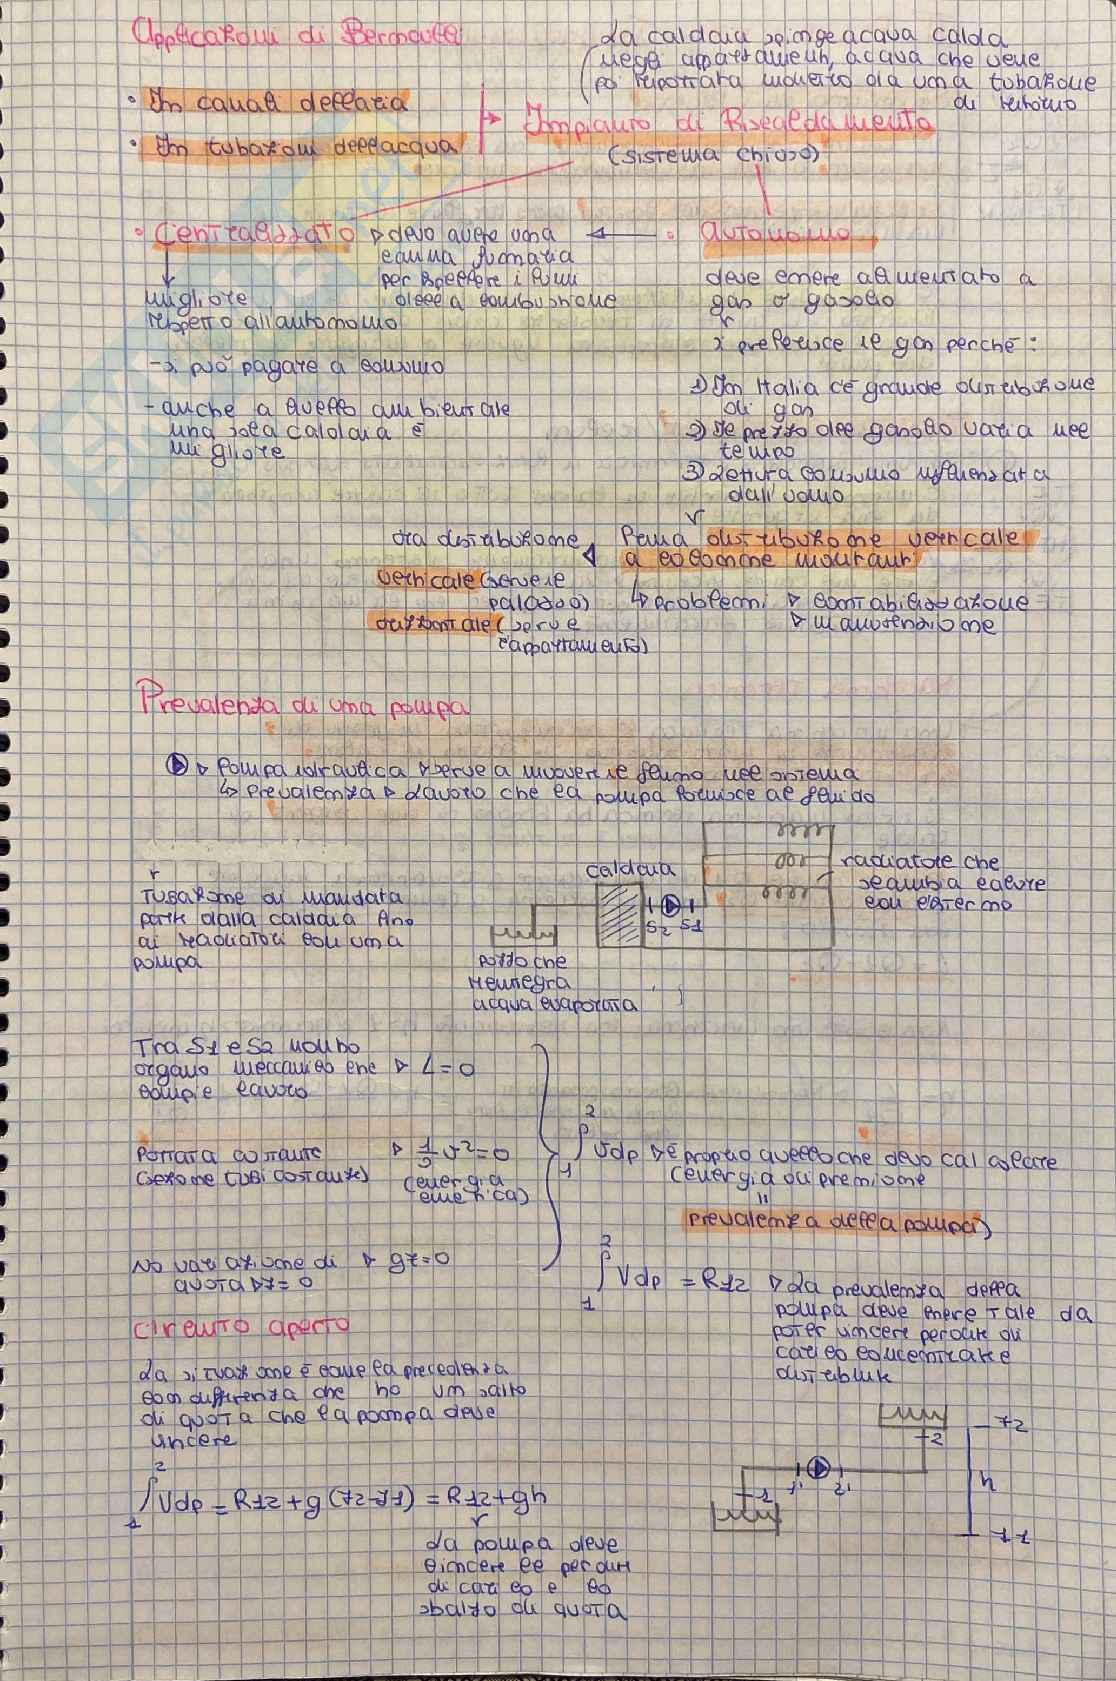 Applicazioni di Bernoulli
La caldaia spinge acqua calda
negli appartamenti, acqua che viene
poi riportata indietro da una tubazione
di ritorno
• In canali dell'aria
• In tubazioni dell'acqua
Impianto di Riscaldamento
(sistema chiuso)
• Centralizzato ▹ devo avere una
canna fumaria
per espellere i fumi
della combustione
• autonomo
migliore
rispetto all'autonomo
- si può pagare a consumo
- anche a livello ambientale
una sola caldaia è
migliore
deve essere alimentato a
gas o gasolio
si preferisce il gas perché:
1) In Italia c'è grande distribuzione
di gas
2) Il prezzo del gasolio varia nel
tempo
3) Lettura consumo influenzata
dall'uomo
Prima distribuzione verticale
a colonne montanti
↳ problemi ▹ contabilizzazione
▹ manutenzione
ora distribuzione
verticale (serve il
palazzo)
orizzontale (serve
l'appartamento)
Prevalenza di una pompa
▹ Pompa idraulica ▹ serve a muovere il fluido nel sistema
↳ prevalenza ▹ lavoro che la pompa fornisce al fluido
Tubazione di mandata
parte dalla caldaia fino
ai radiatori con una
pompa
caldaia
S2 S1
radiatore che
scambia calore
con l'esterno
pozzo che
reintegra
acqua evaporata
Tra S1 e S2 non ho
organo meccanico che ▹ L=0
compie lavoro
Portata costante ▹ 1/2 v²=0
(sezione tubi costante) (energia
cinetica)
No variazione di ▹ gz=0
quota ▹ z=0
∫₁² Vdp ▹ è proprio quello che devo calcolare
(energia di pressione
"
prevalenza della pompa)
∫₁² Vdp = R12 ▹ La prevalenza della
pompa deve essere tale da
poter vincere perdite di
carico concentrate e
distribuite
Circuito aperto
La situazione è come la precedente
con differenza che ho un salto
di quota che la pompa deve
vincere
∫₁² Vdp = R12 + g (z2-z1) = R12 + gh
La pompa deve
vincere le perdite
di carico e lo
sbalzo di quota
2
z2
1
1'
2'
h
z1